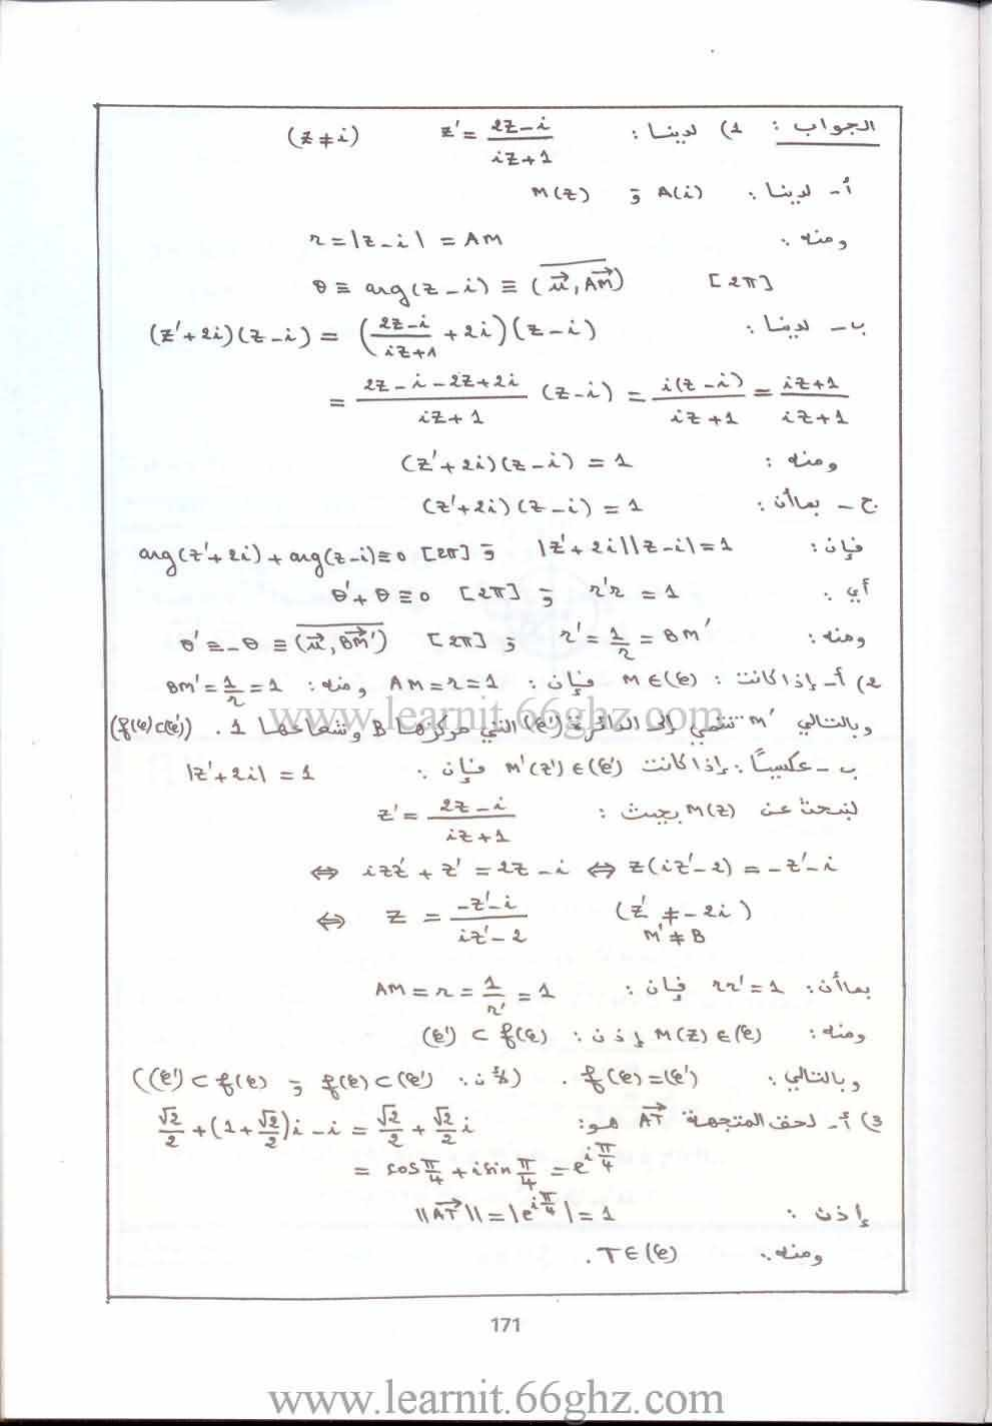 الجواب : 1) لدينا : z' = (2z-i)/(iz+1) (z ≠ i)
أ- لدينا : A(i) و M(z)
ومنه : r = |z-i| = AM
θ ≡ arg(z-i) ≡ (u⃗, AM⃗) [2π]
ب- لدينا : (z'+2i)(z-i) = ((2z-i)/(iz+1) + 2i)(z-i)
= (2z-i-2z+2i)/(iz+1) (z-i) = i(z-i)/(iz+1) = (iz+1)/(iz+1)
ومنه : (z'+2i)(z-i) = 1
ج- بما أن : (z'+2i)(z-i) = 1
فإن : |z'+2i||z-i| = 1 و arg(z'+2i) + arg(z-i) ≡ 0 [2π]
أي : r'r = 1 و θ'+θ ≡ 0 [2π]
ومنه : r' = 1/r = BM' و θ' ≡ -θ ≡ (u⃗, BM'⃗) [2π]
2) أ- إذا كانت : M∈(𝒞) فإن : AM = r = 1 ومنه : BM' = 1/r = 1
وبالتالي M' تنتمي إلى الدائرة (𝒞') التي مركزها B وشعاعها 1 . (f(𝒞)⊂(𝒞'))
ب- عكسيًا : إذا كانت M'(z')∈(𝒞') فإن : |z'+2i| = 1
لنبحث عن M(z) بحيث : z' = (2z-i)/(iz+1)
⇔ izz' + z' = 2z - i ⇔ z(iz'-2) = -z'-i
⇔ z = (-z'-i)/(iz'-2) (z' ≠ -2i)
M' ≠ B
بما أن : rr' = 1 فإن : AM = r = 1/r' = 1
ومنه : M(z)∈(𝒞) إذن : (𝒞') ⊂ f(𝒞)
وبالتالي : f(𝒞) = (𝒞') . (لأن : f(𝒞)⊂(𝒞') و (𝒞')⊂f(𝒞))
3) أ- لحق المتجهة AT⃗ هو : √2/2 + (1+√2/2)i - i = √2/2 + √2/2 i
= cos π/4 + i sin π/4 = e^(iπ/4)
إذن : ||AT⃗|| = |e^(iπ/4)| = 1
ومنه : T∈(𝒞) .
171
www.learnit.66ghz.com
www.learnit.66ghz.com